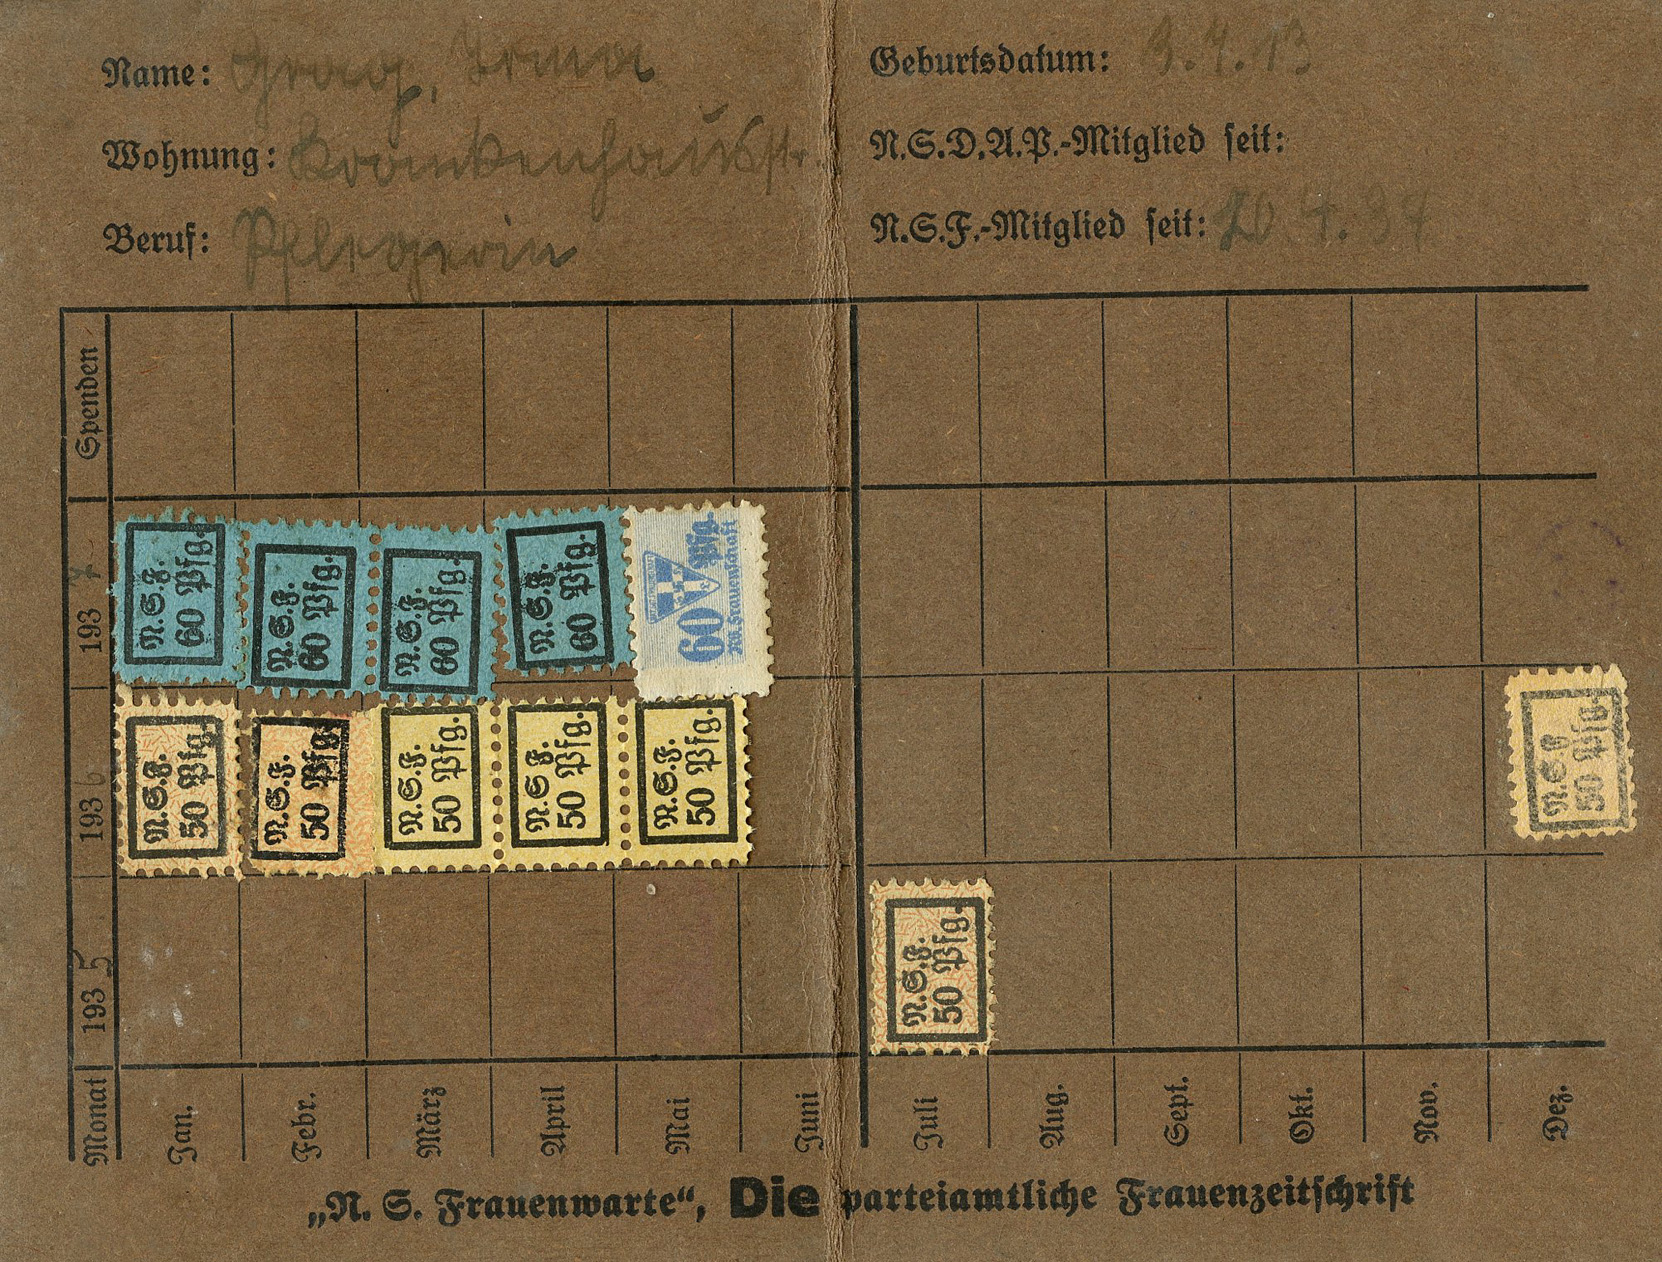 Name: Graf, Irma
Wohnung: Krankenhausstr.
Beruf: Pflegerin
Geburtsdatum: 3.7.13
N.S.D.A.P.-Mitglied seit:
N.S.F.-Mitglied seit: 20 4.34
Spenden
1937
N.S.F. 60 Pfg.
N.S.F. 60 Pfg.
N.S.F. 60 Pfg.
N.S.F. 60 Pfg.
60 Pfg. NS. Frauenschaft
1936
N.S.F. 50 Pfg.
N.S.F. 50 Pfg.
N.S.F. 50 Pfg.
N.S.F. 50 Pfg.
N.S.F. 50 Pfg.
N.S.F. 50 Pfg.
1935
N.S.F. 50 Pfg.
Monat Jan. Febr. März April Mai Juni Juli Aug. Sept. Okt. Nov. Dez.
„N. S. Frauenwarte“, Die parteiamtliche Frauenzeitschrift